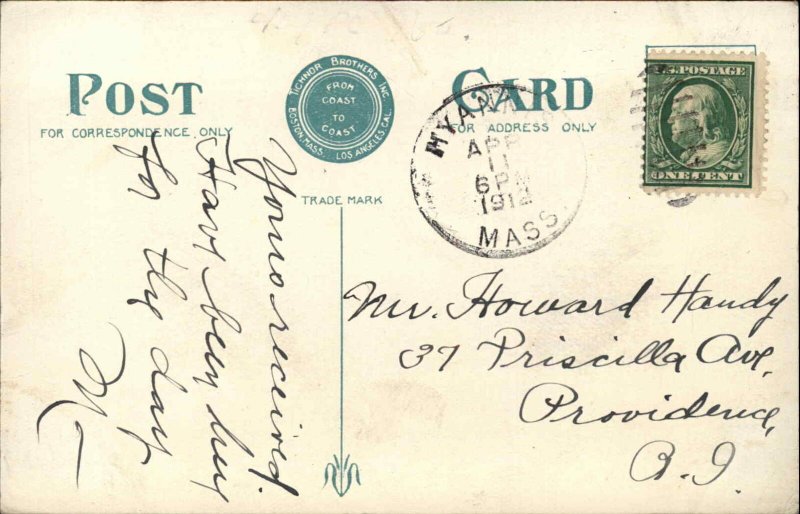 POST CARD
FOR CORRESPONDENCE ONLY
FOR ADDRESS ONLY
TICHNOR BROTHERS INC.
BOSTON, MASS. LOS ANGELES, CAL.
FROM
COAST
TO
COAST
TRADE MARK
HYANNIS
APR
11
6 PM
1912
MASS.
U.S. POSTAGE
ONE CENT
Yours received.
Have been here
for the day
Mr. Howard Handy
37 Priscilla Ave,
Providence,
R.I.